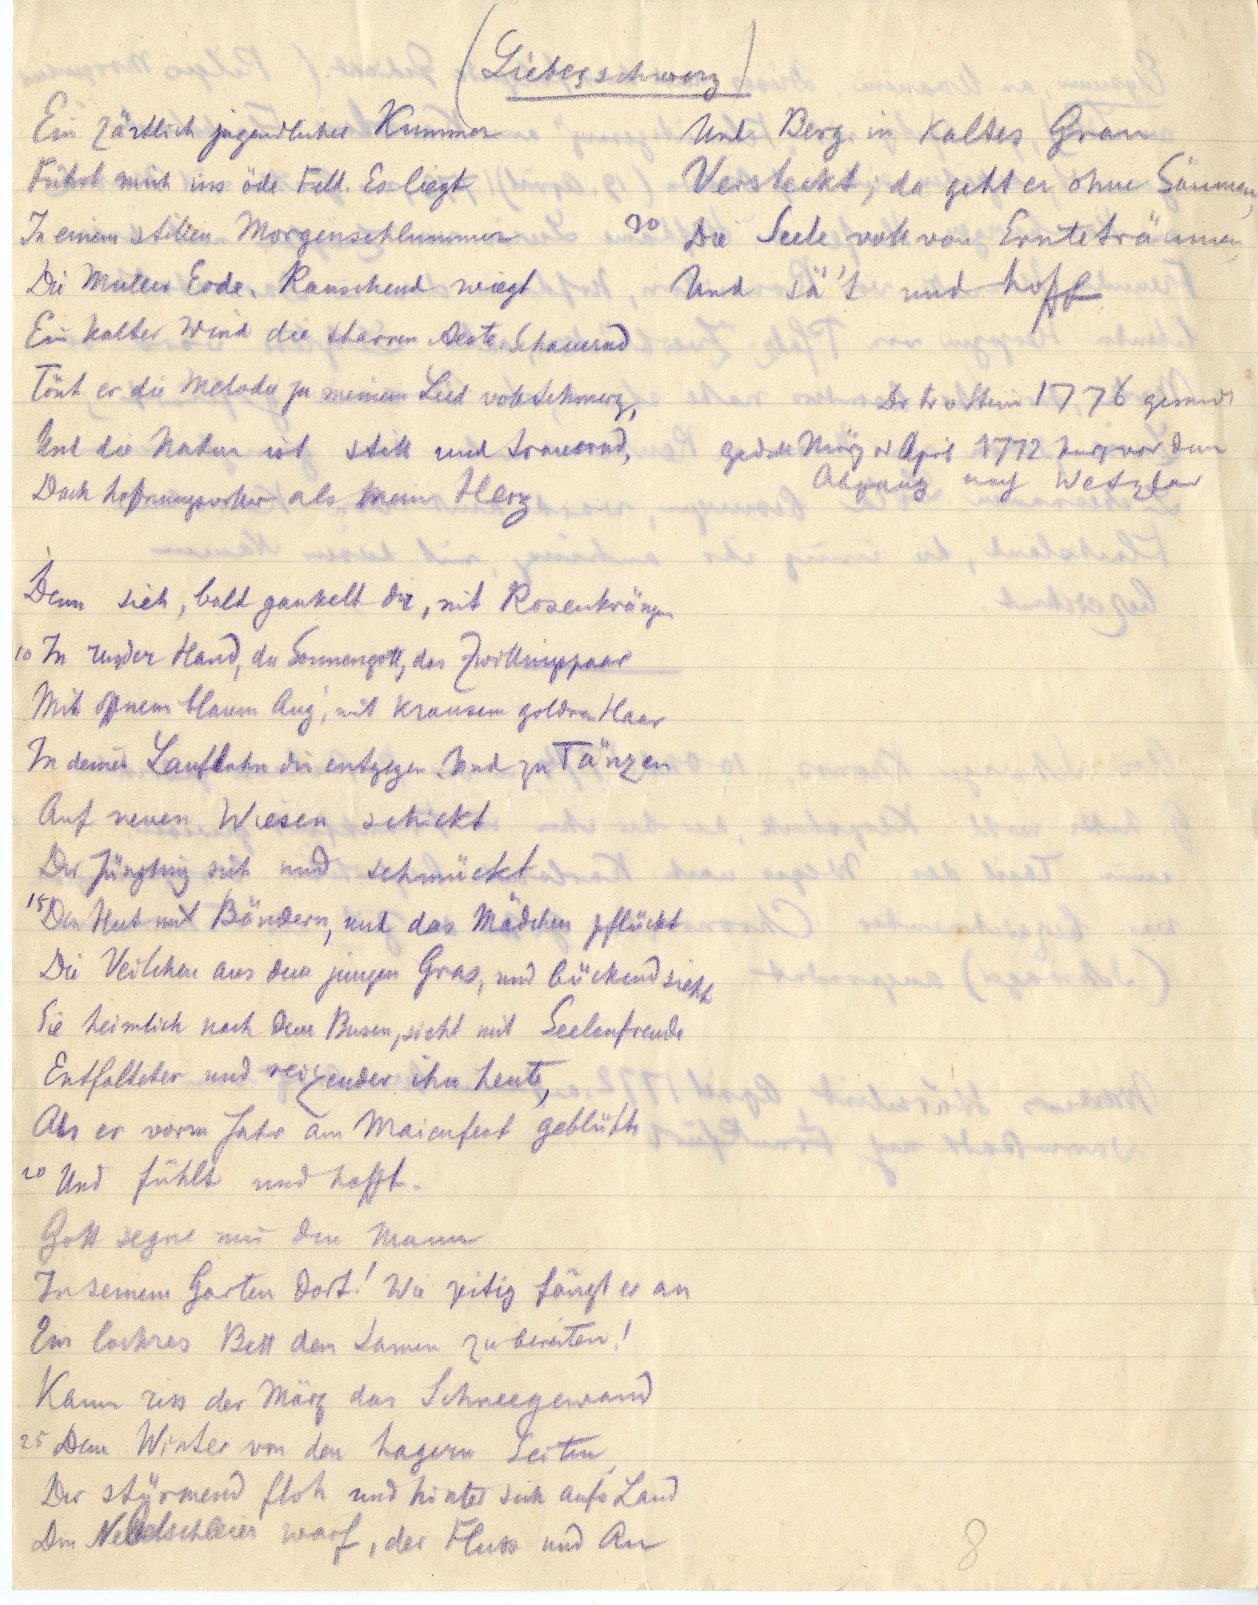 (Liebesschmerz)
Ein zärtlich jugendlicher Kummer
Führt mich ins öde Feld. Es liegt
In einem stillen Morgenschlummer
Die Mutter Erde. Rauschend wiegt
Ein kalter Wind die starren Aeste. Schauernd
Tönt er die Melodie zu meinem Lied voll Schmerz,
Und die Natur ist still und trauernd,
Doch hofnungsvoller als mein Herz
Denn sieh, bald gaukelt dir, mit Rosenkränzen
10 In runder Hand, du Sonnengott, das Zwillingspaar
Mit offnem blauem Aug', mit krausem goldnen Haar
In deiner Laufbahn dir entgegen. Und zu Tänzen
Auf neuen Wiesen schickt
Der Jüngling sich und schmückt
15 Den Hut mit Bändern, und das Mädchen pflückt
Die Veilchen aus dem jungen Gras, und bückend sieht
Sie heimlich nach dem Busen, sieht mit Seelenfreude
Entfalteter und reizender ihn heute,
Als er vorm Jahr am Maienfest geblüht
20 Und fühlt und hofft.
Gott segne mir den Mann
In seinem Garten dort! Wie zeitig fängt er an
Ein lockres Bett dem Samen zu bereiten!
Kaum riss der März das Schneegewand
25 Dem Winter von den hagern Seiten,
Der stürmend floh und hinter sich aufs Land
Den Nebelschleier warf, der Fluss und Au
Und Berg in kaltes Grau
Versteckt; da geht er ohne Säumen,
30 Die Seele voll von Ernteträumen,
Und sä't und hofft
Der Fr v Stein 1776 gesandt
gedicht März od April 1772 kurz vor dem
Abgang nach Wetzlar
8